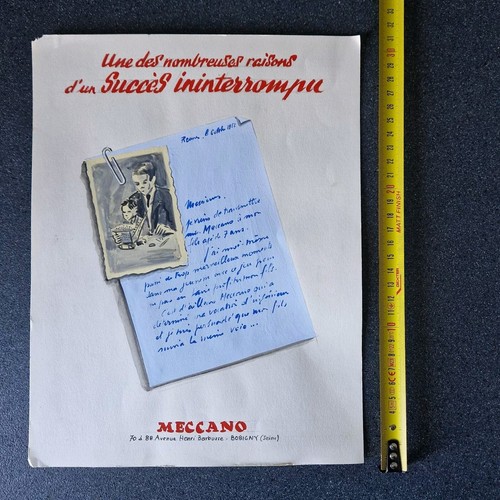 Une des nombreuses raisons
d'un Succès ininterrompu
Messieurs,
je viens de transmettre
mon Meccano à mon
fils âgé de 7 ans.
J'ai moi-même
passé de trop merveilleux moments
dans ma jeunesse avec ce jeu pour
ne pas en faire profiter mon fils.
C'est d'ailleurs Meccano qui a
déterminé ma vocation d'ingénieur
et je suis persuadé que mon fils
suivra la même voie ...
MECCANO
70 à 88 Avenue Henri Barbusse - BOBIGNY (Seine)
MATT FINISH